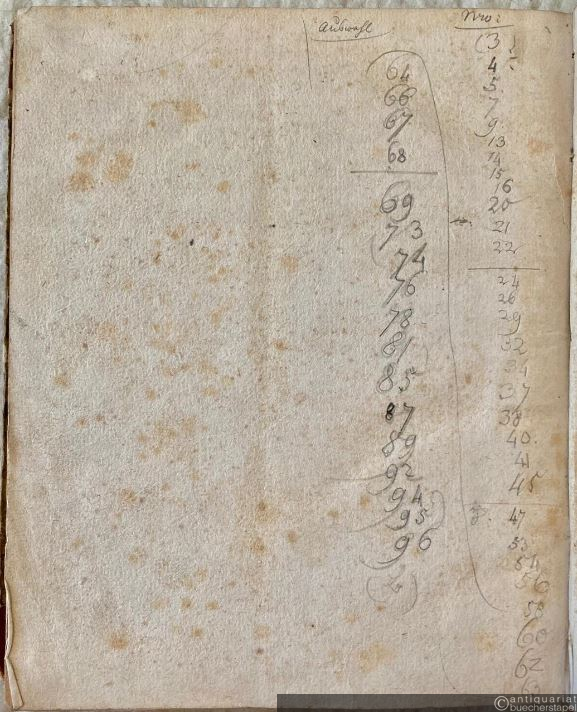 Auswahl
64
66
67
68
69
73
74
76
78
81
85
87
89
92
94
95
96
Nro:
(3
4
5
7
9
13
14
15
16
20
21
22
24
26
29
32
34
37
38
40.
41
45
47
53
54
56
58
60
62
©antiquariat
buecherstapel